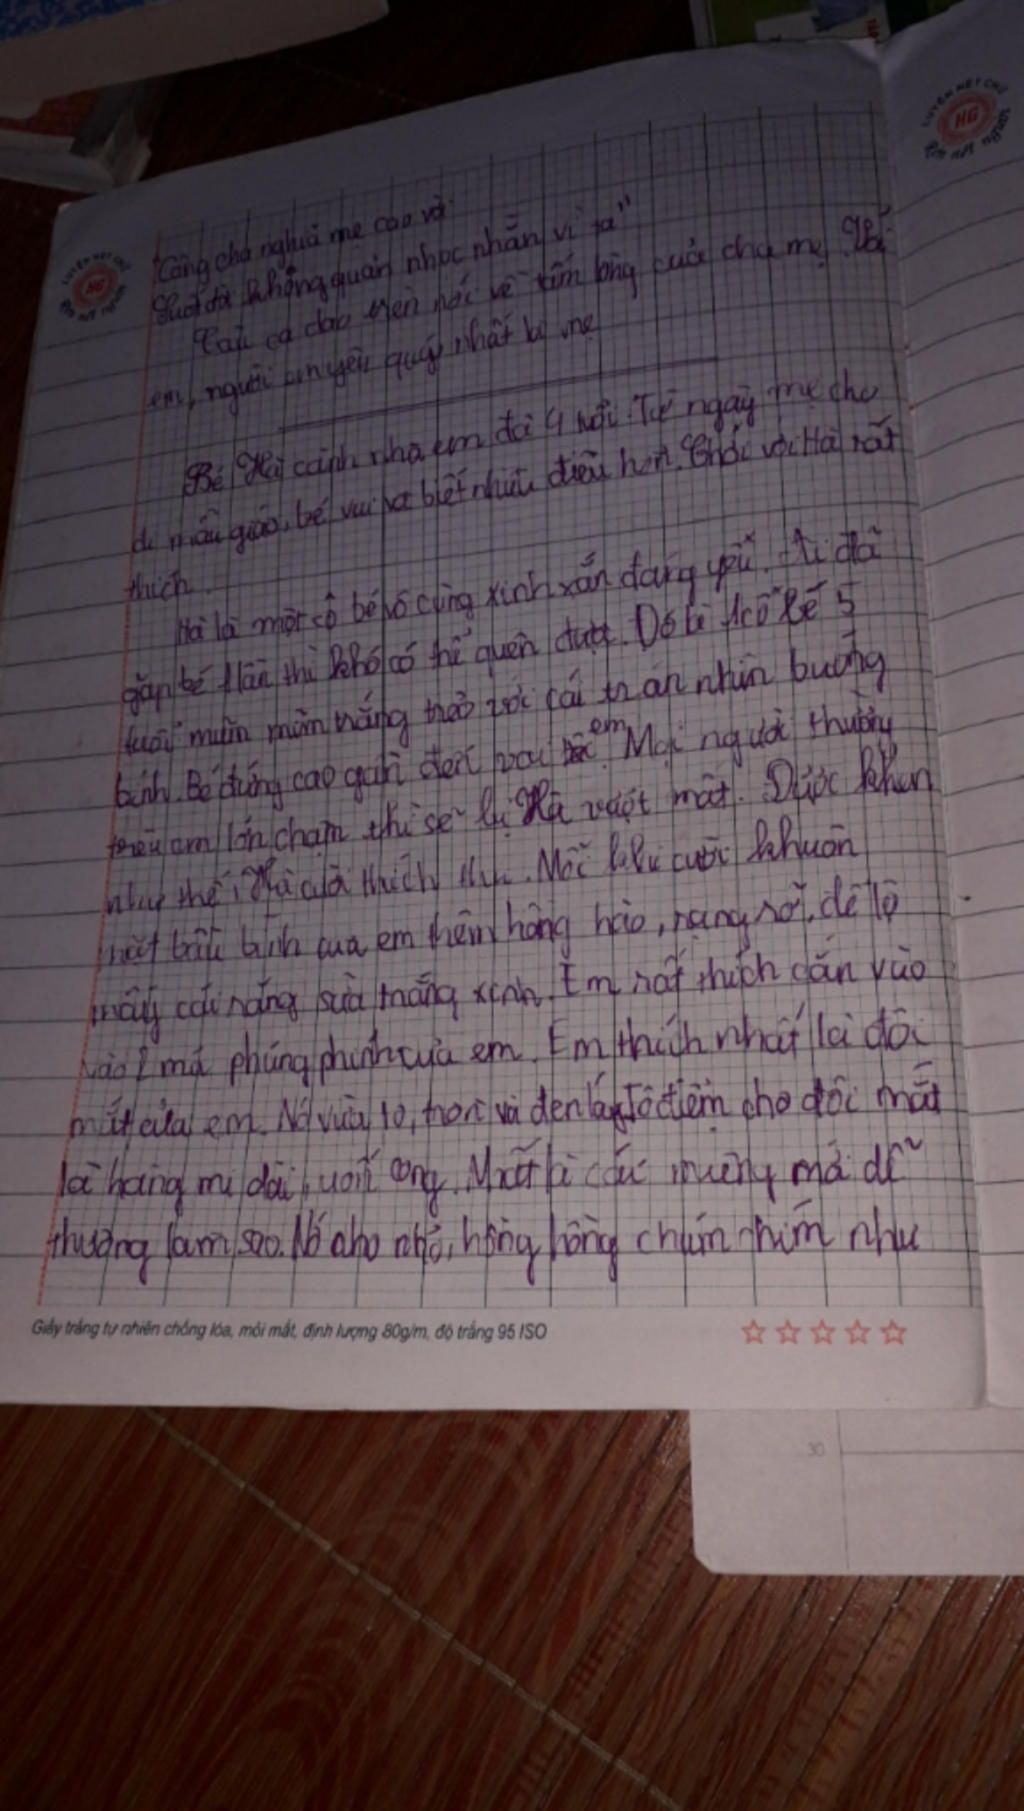 "Công cha nghĩa mẹ cao vời
Suốt đời không quản nhọc nhằn vì ta"
Câu ca dao trên nói về tấm lòng của cha mẹ. Với
em, người em yêu quý nhất là mẹ
Bé Hà cạnh nhà em đã 4 tuổi. Từ ngày mẹ cho
đi mẫu giáo, bé vui và biết nhiều điều hơn. Chơi với Hà rất
thích.
Hà là một cô bé vô cùng xinh xắn đáng yêu. Ai đã
gặp bé 1 lần thì khó có thể quên được. Đó là 1 cô bé 5
tuổi mũm mĩm trắng trẻo với cái trán nhìn bướng
bỉnh. Bé đứng cao gần đến vai em. Mọi người thường
trêu em lớn chậm thì sẽ bị Hà vượt mất. Được khen
như thế, Hà thích Mỗi khi cười khuôn
mặt bầu bĩnh của em thêm hồng hào, rạng rỡ, để lộ
mấy cái răng sữa trắng xinh. Em rất thích cắn vào
vào 2 má phúng phính của em. Em thích nhất là đôi
mắt của em. Nó vừa to, tròn và đen láy. Tô điểm cho đôi mắt
là hàng mi dài, uốn cong. Mất là cái muệng mà dễ
thương làm sao. Nó nho nhỏ, hồng hồng chúm chím như
Giấy trắng tự nhiên chống lóa, mỏi mắt, định lượng 80g/m, độ trắng 95 ISO
LUYỆN NÉT CHỮ
HG
RÈN NẾT NGƯỜI
LUYỆN NÉT CHỮ
HG
RÈN NẾT NGƯỜI
30